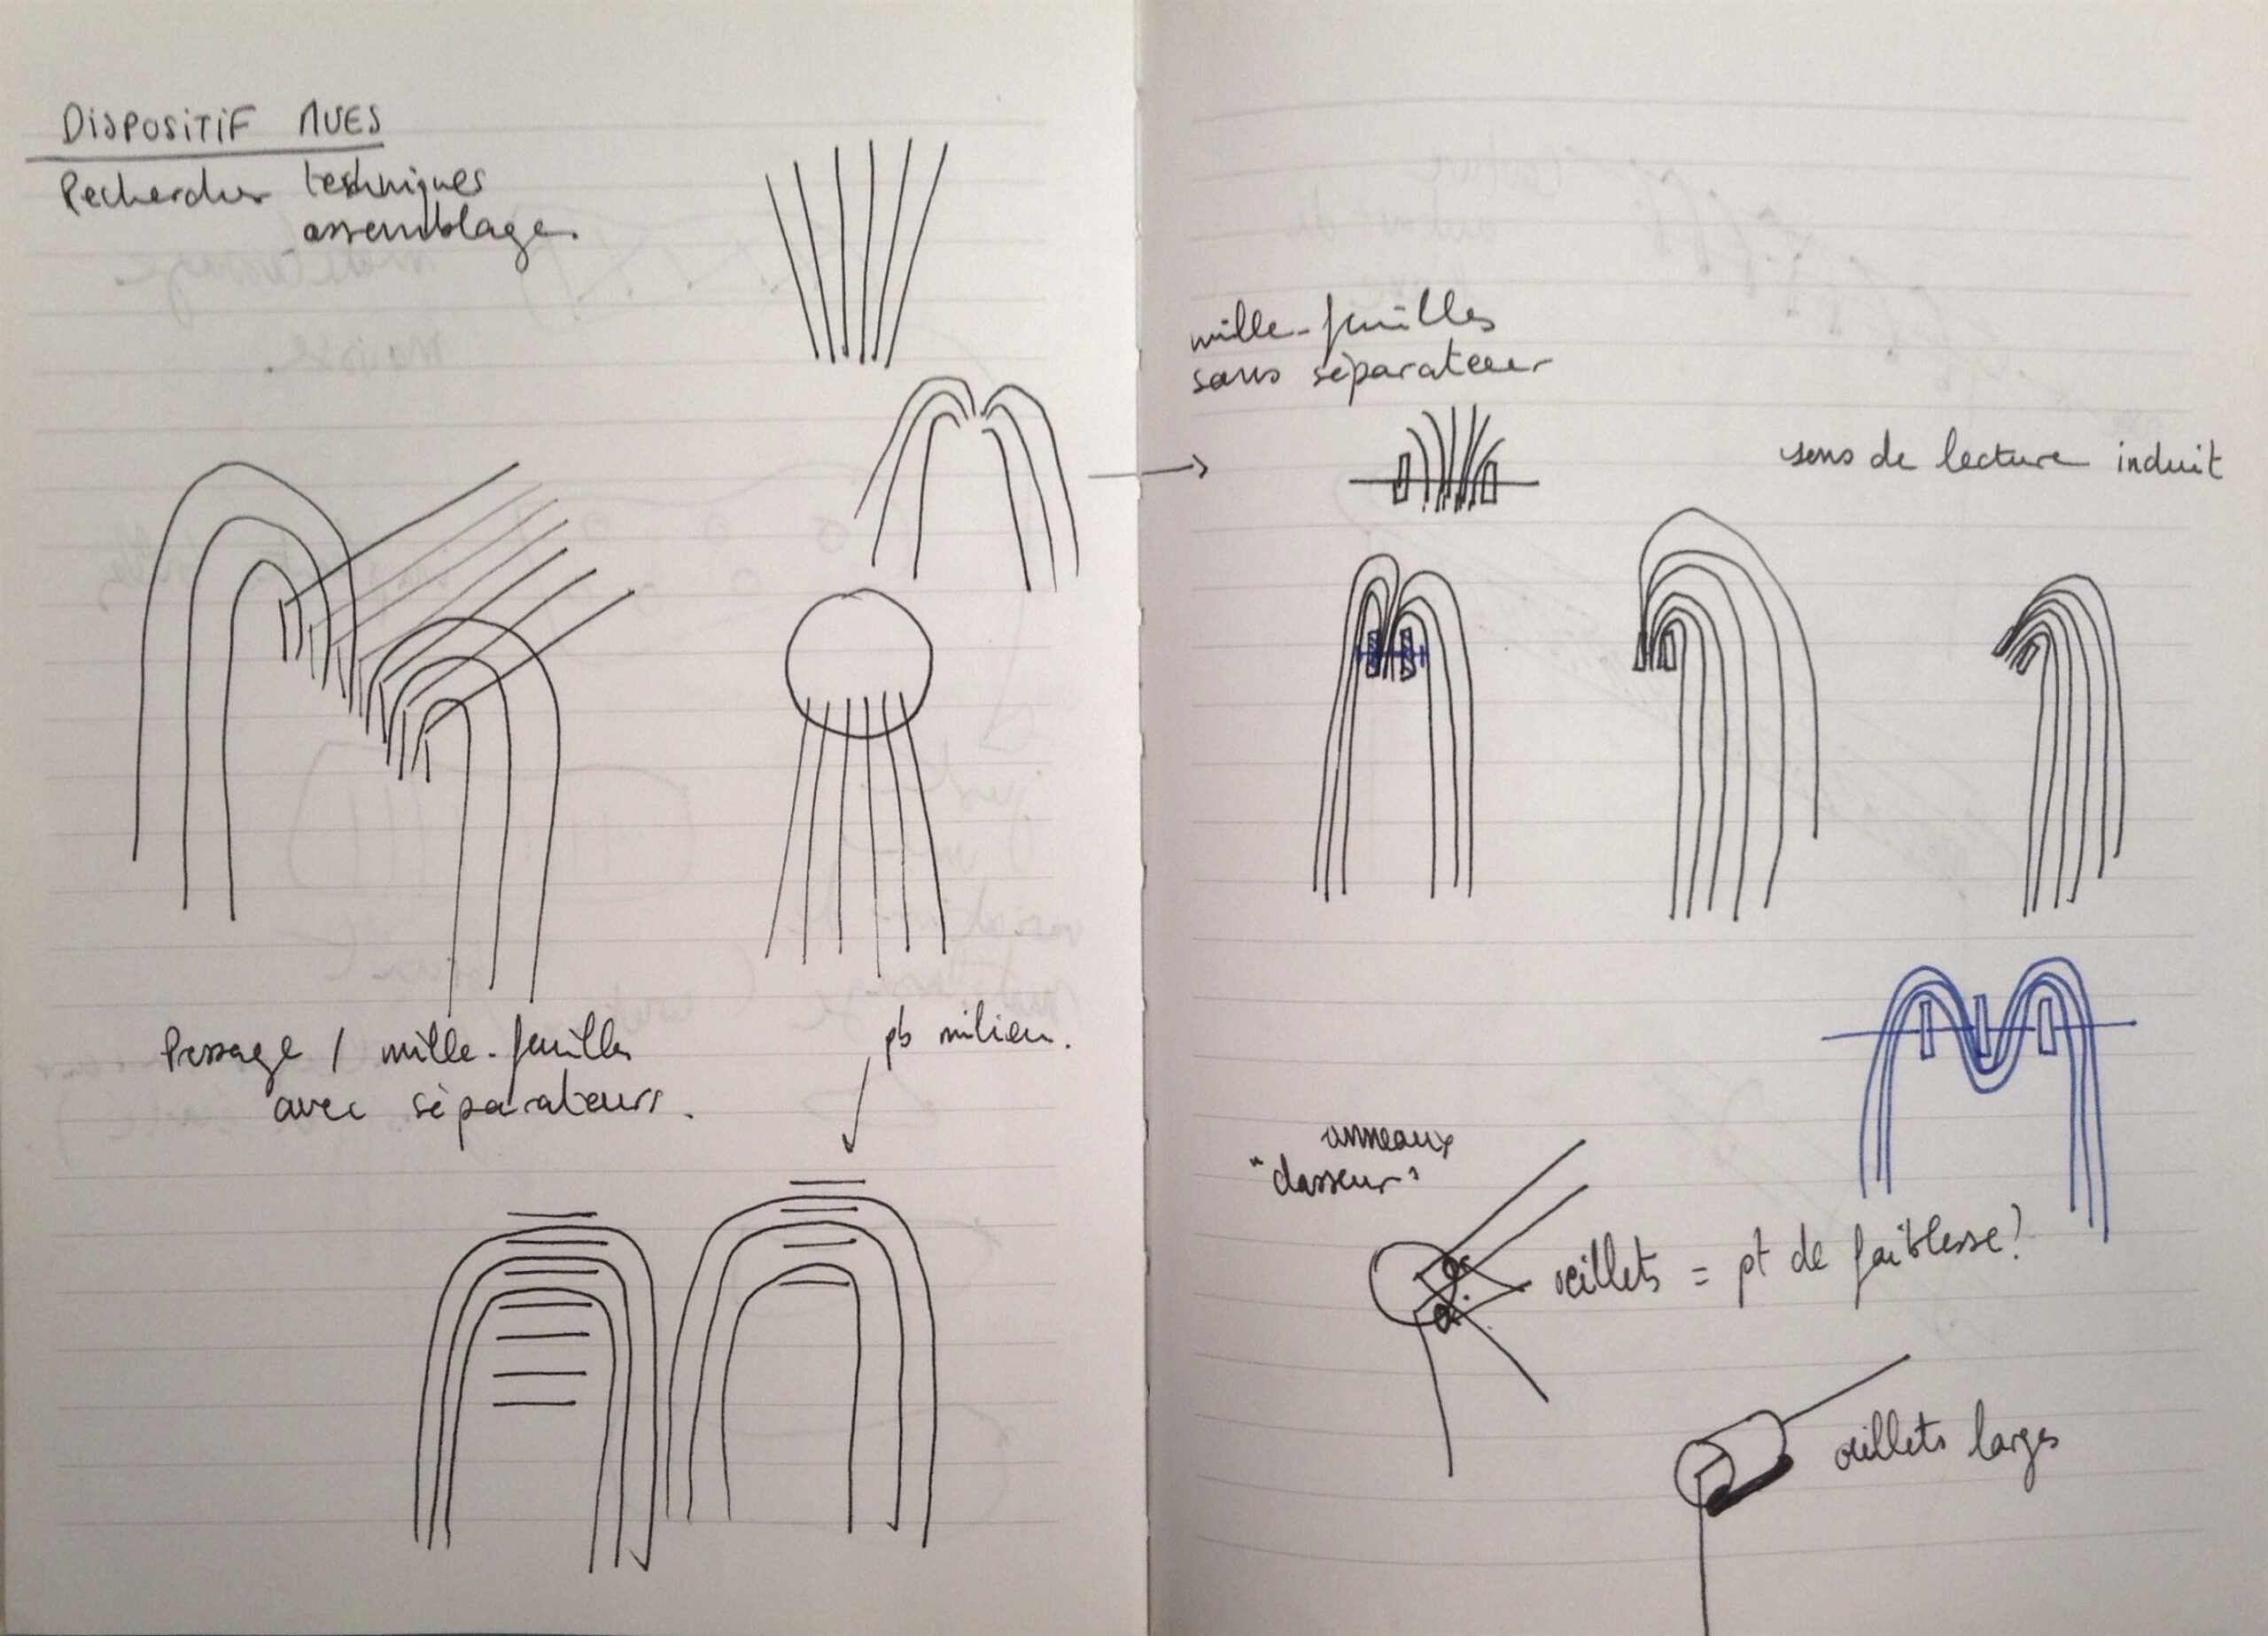 DISPOSITIF NUES
Recherches techniques
assemblage.
Pressage / mille-feuilles
avec séparateurs.
pb milieu.
mille-feuilles
sans séparateur
sens de lecture induit
anneaux
"classeur"
œillets = pt de faiblesse?
œillets larges